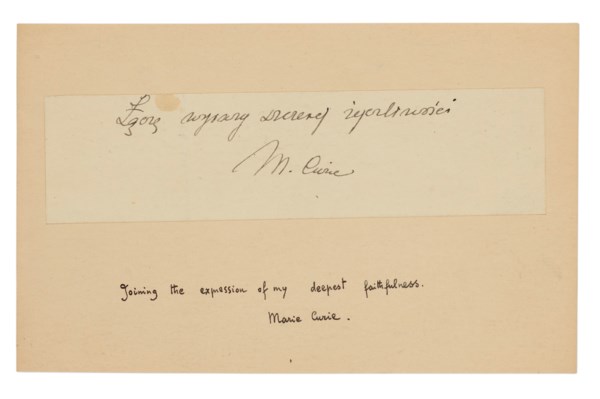 Łączę wyrazy szczerej życzliwości
M. Curie
Joining the expression of my deepest faithfulness.
Marie Curie.